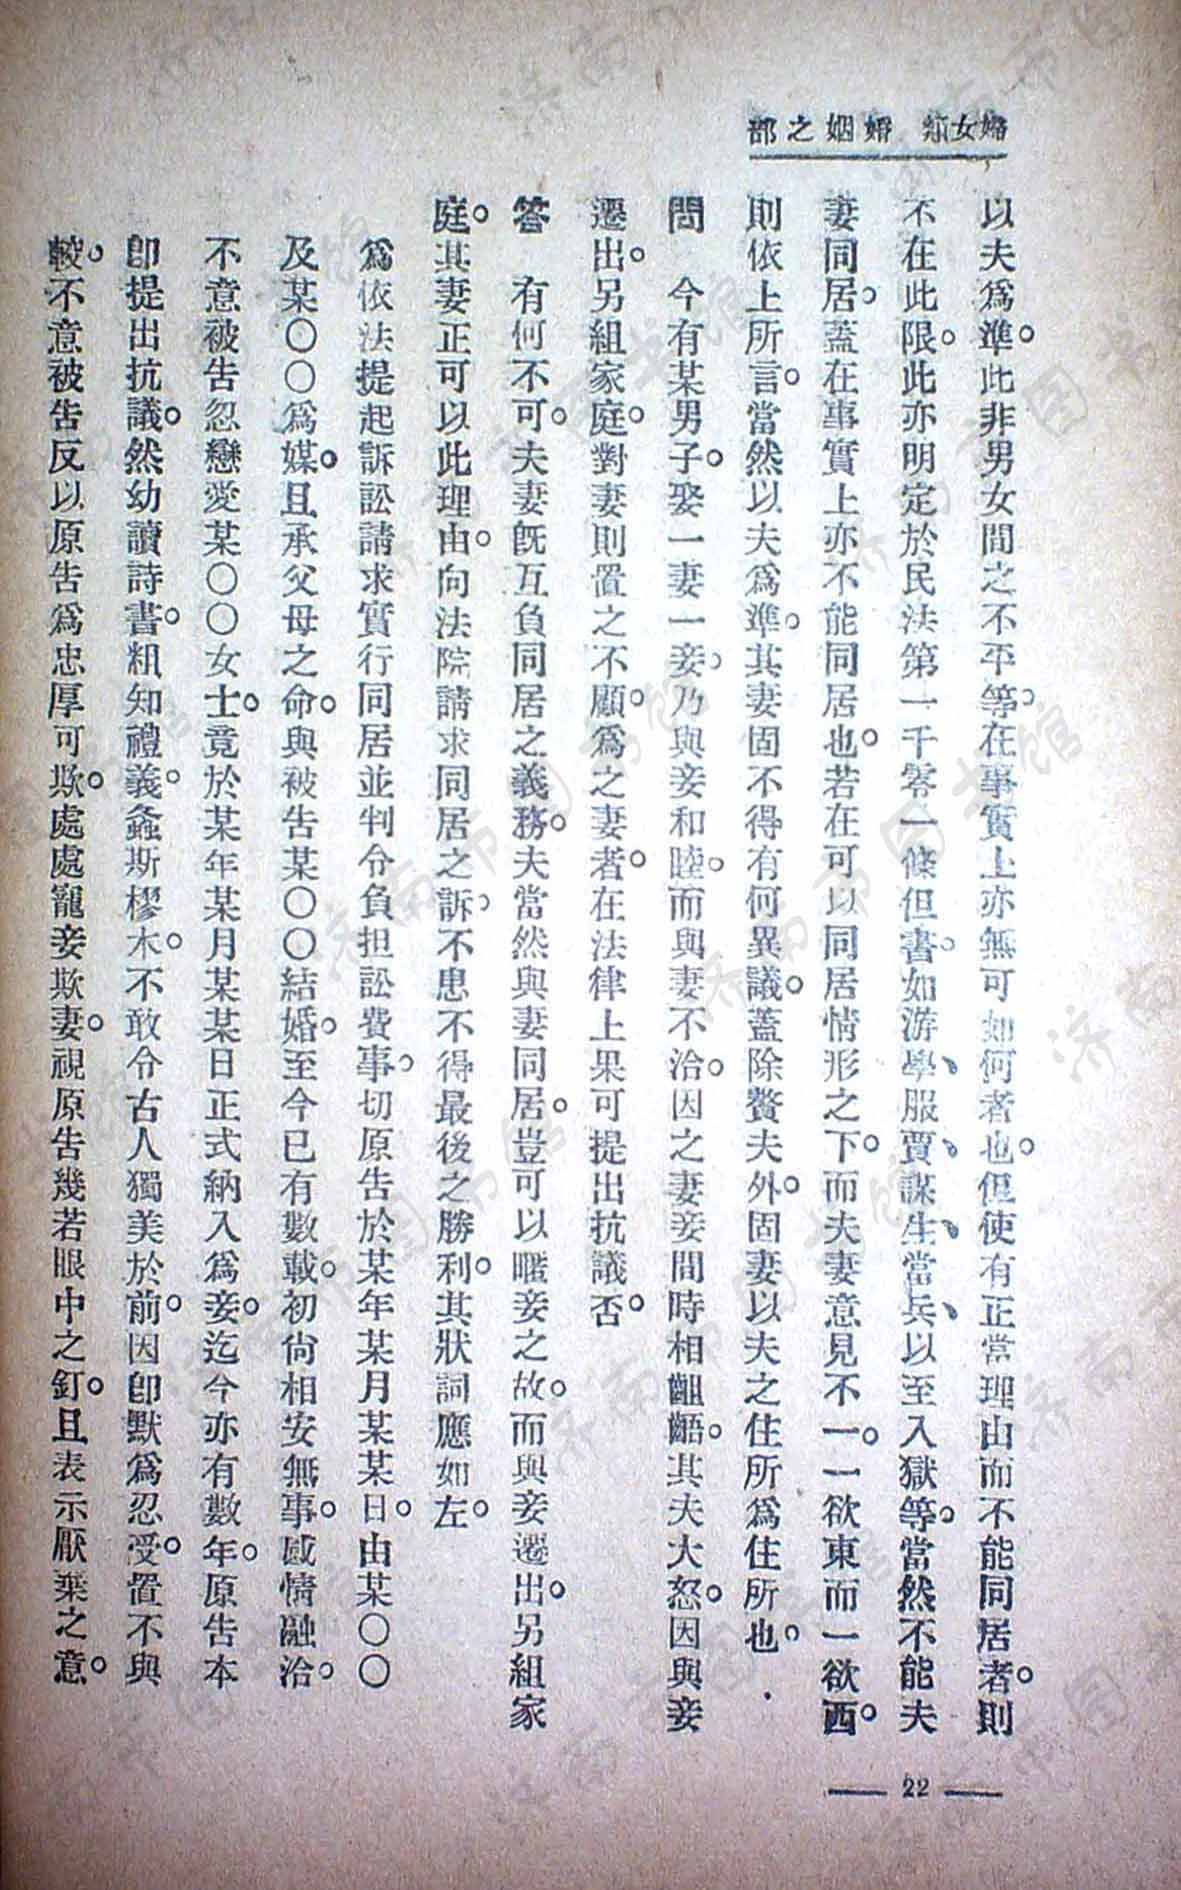 婦女類　婚姻之部
以夫爲準。此非男女間之不平等。在事實上亦無可如何者也。但使有正當理由而不能同居者。則
不在此限。此亦明定於民法第一千零一條但書。如游學、服賈、謀生、當兵、以至入獄等。當然不能夫
妻同居。蓋在事實上亦不能同居也。若在可以同居情形之下。而夫妻意見不一。一欲東而一欲西。
則依上所言。當然以夫爲準。其妻固不得有何異議。蓋除贅夫外。固妻以夫之住所爲住所也。
問　今有某男子。娶一妻一妾。乃與妾和睦。而與妻不洽。因之妻妾間時相齟齬。其夫大怒。因與妾
遷出。另組家庭。對妻則置之不顧。爲之妻者。在法律上果可提出抗議否。
答　有何不可。夫妻旣互負同居之義務。夫當然與妻同居。豈可以暱妾之故。而與妾遷出。另組家
庭。其妻正可以此理由。向法院請求同居之訴。不患不得最後之勝利。其狀詞應如左。
爲依法提起訴訟請求實行同居並判令負担訟費事。切原告於某年某月某某日。由某〇〇
及某〇〇爲媒。且承父母之命。與被告某〇〇結婚。至今已有數載。初尙相安無事。感情融洽。
不意被告忽戀愛某〇〇女士。竟於某年某月某某日正式納入爲妾。迄今亦有數年。原告本
卽提出抗議。然幼讀詩書。粗知禮義。螽斯樛木。不敢令古人獨美於前。因卽默爲忍受。置不與
較。不意被告反以原告爲忠厚可欺。處處寵妾欺妻。視原告幾若眼中之釘。且表示厭棄之意。
22
济南市图书馆